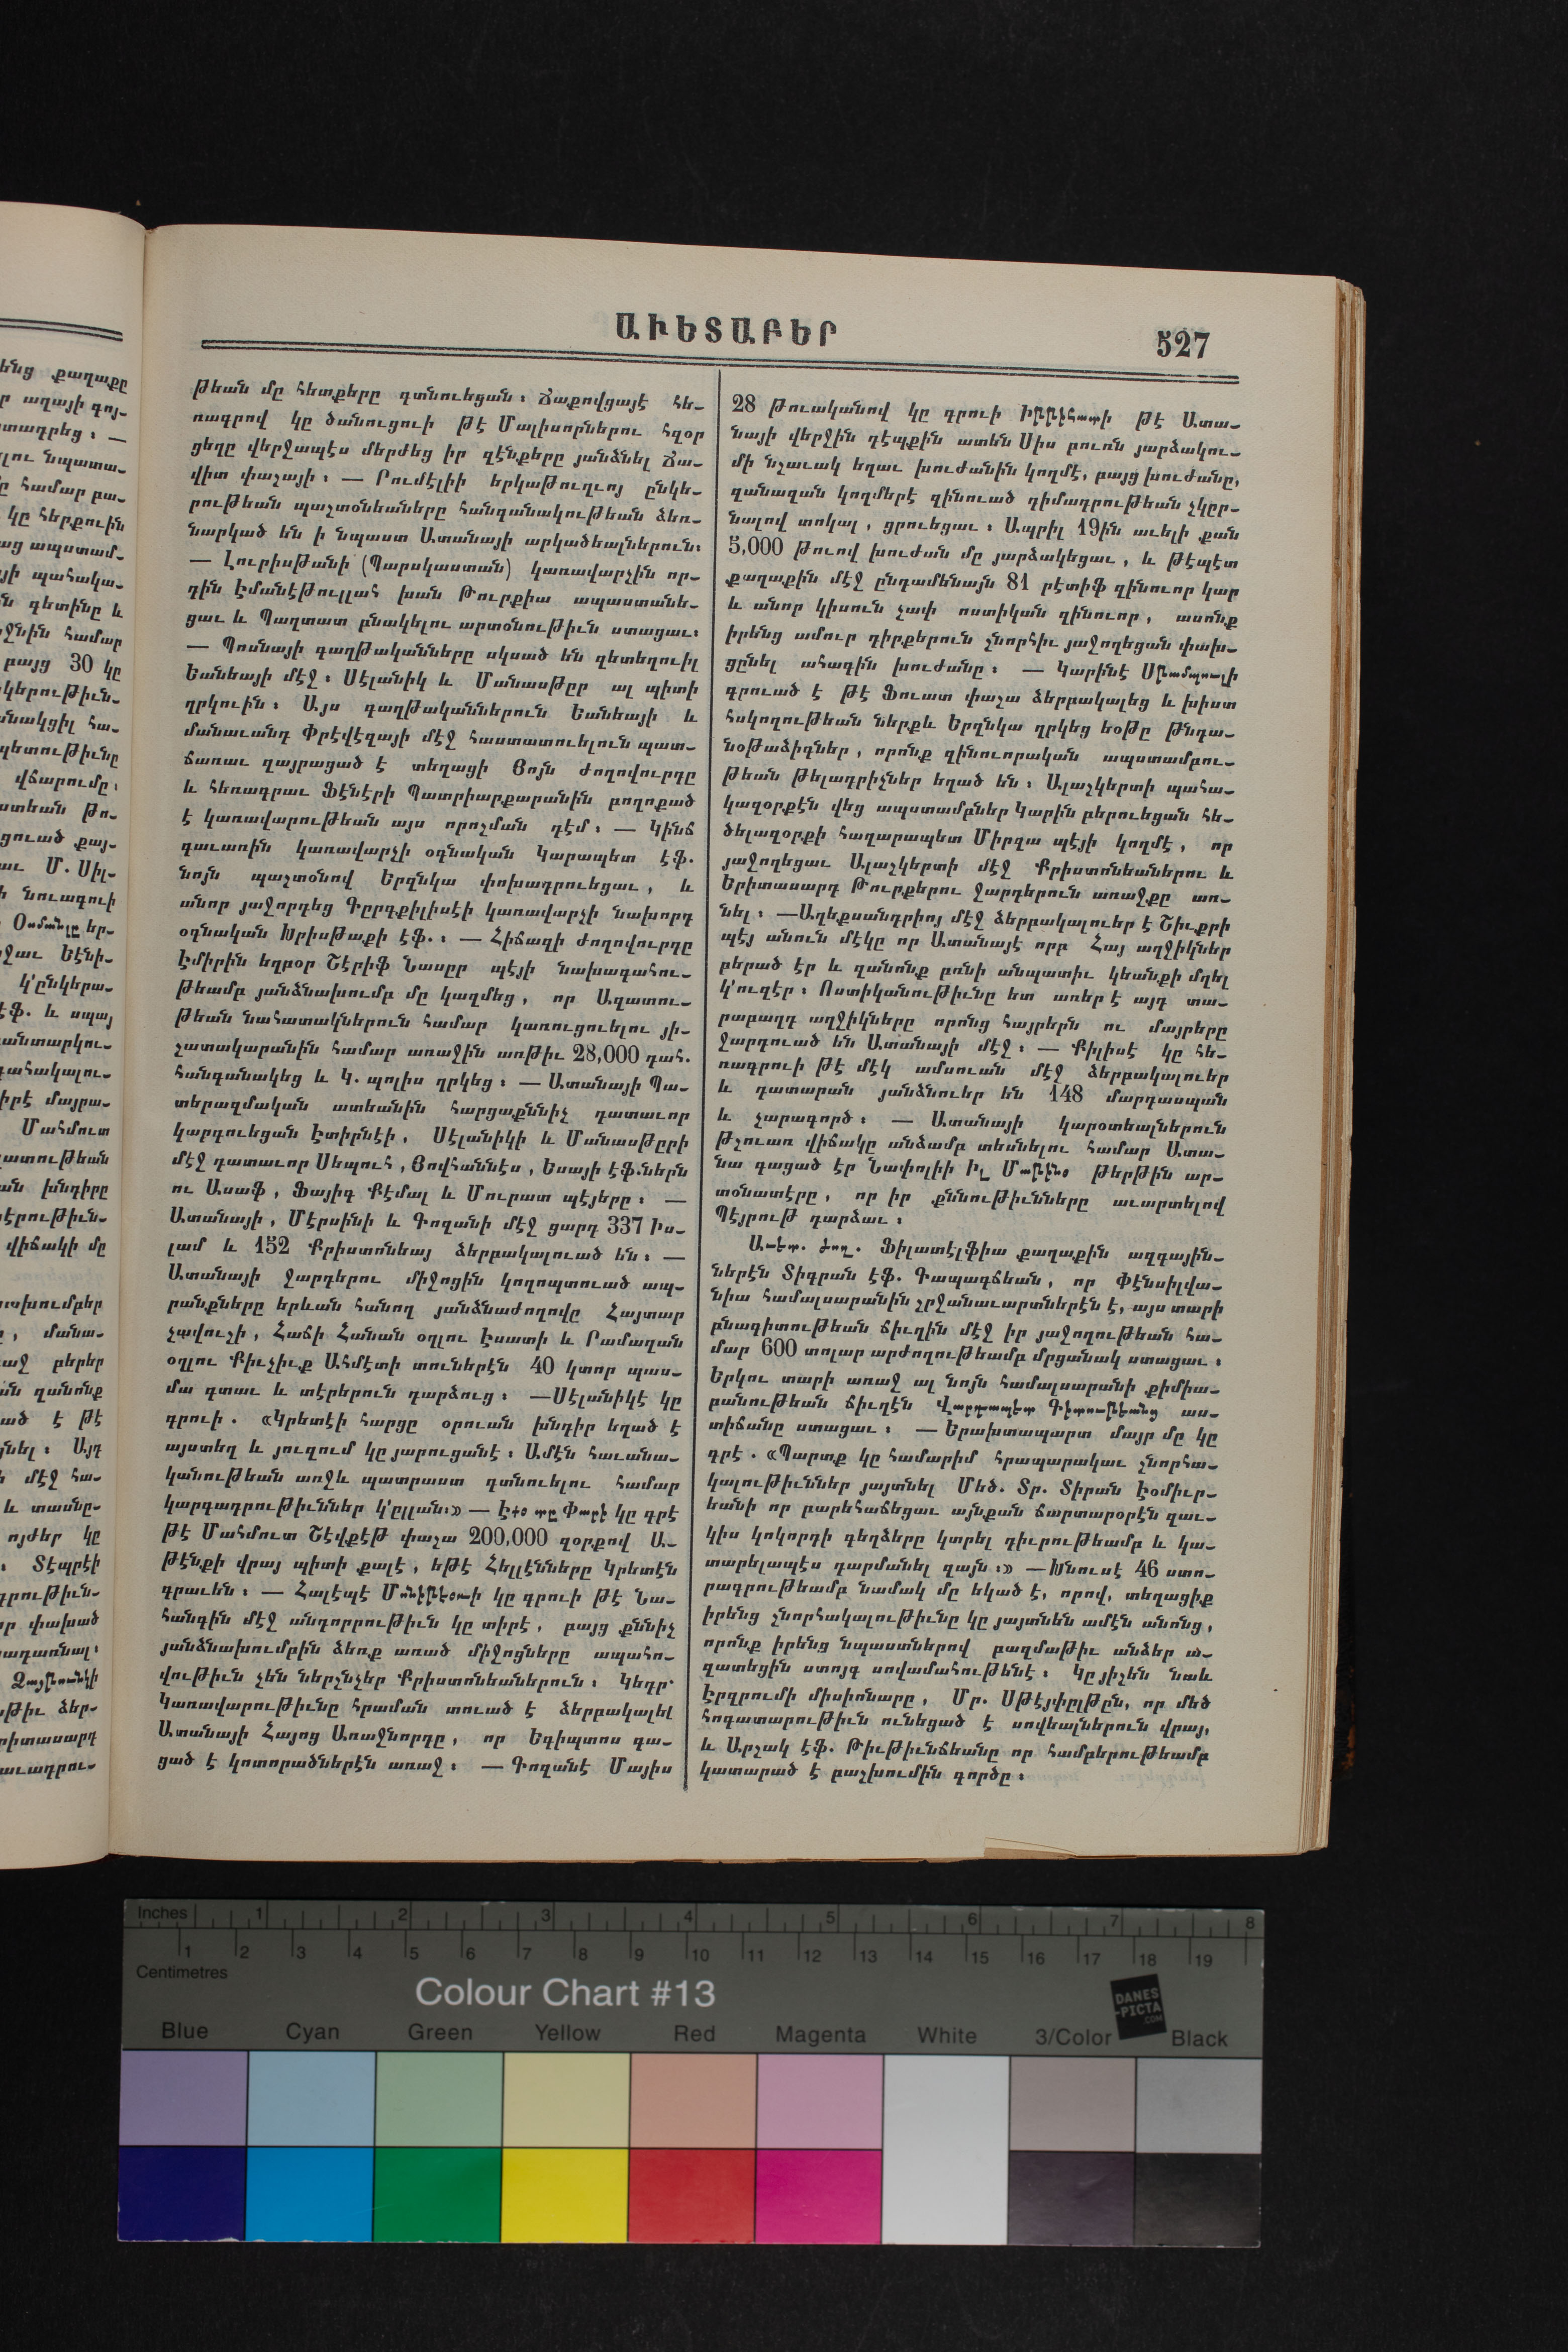 ԱՒԵՏԱԲԵՐ
527
թեան մը հետքերը գտնուեցան։ Ճաքովցայէ հե-
ռագրով կը ծանուցուի թէ Մալիսորներու հզօր
ցեղը վերջապէս մերժեց իր զէնքերը յանձնել Ճա-
վիտ փաշայի։ — Րումէլիի երկաթուղւոյ ընկե-
րութեան պաշտօնեաները հանգանակութեան ձեռ-
նարկած են ի նպաստ Ատանայի արկածեալներուն։
— Լուրիսթանի (Պարսկաստան) կառավարչին որ-
դին Էմանէթուլլահ խան Թուրքիա ապաստանե-
ցաւ և Պաղտատ բնակելու արտօնութիւն ստացաւ։
— Պոսնայի գաղթականները սկսած են զետեղուիլ
Եանեայի մէջ։ Սէլանիկ և Մանասթըր ալ պիտի
ղրկուին։ Այս գաղթականներուն Եանեայի և
մանաւանդ Փրէվէզայի մէջ հաստատուելուն պատ-
ճառաւ զայրացած է տեղացի Յոյն ժողովուրդը
և հեռագրաւ Ֆէնէրի Պատրիարքարանին բողոքած
է կառավարութեան այս որոշման դէմ։ — Կինճ
գաւառին կառավարչի օգնական Կարապետ էֆ.
նոյն պաշտօնով Երզնկա փոխադրուեցաւ, և
անոր յաջորդեց Գըրգքիլիսէի կառավարչի նախորդ
օգնական Խրիսթաքի էֆ.։ — Հիճազի ժողովուրդը
Էմիրին եղբօր Շէրիֆ Նասըր պէյի նախագահու-
թեամբ յանձնախումբ մը կազմեց, որ Ազատու-
թեան նահատակներուն համար կառուցուելու յի-
շատակարանին համար առաջին առթիւ 28,000 դահ.
հանգանակեց և Կ. պոլիս ղրկեց։ — Ատանայի Պա-
տերազմական ատեանին հարցաքննիչ դատաւոր
կարգուեցան Էտիրնէի, Սէլանիկի և Մանասթըրի
մէջ դատաւոր Սեպուհ, Յովհաննէս, Եսայի էֆ.ներն
ու Ասաֆ, Ֆայիգ Քէմալ և Մուրատ պէյերը։ —
Ատանայի, Մէրսինի և Գոզանի մէջ ցարդ 337 Իս-
լամ և 152 Քրիստոնեայ ձերբակալուած են։ —
Ատանայի ջարդերու միջոցին կողոպտուած ապ-
րանքները երևան հանող յանձնաժողովը Հայտար
չավուշի, Հաճի Հանան օղլու Էսատի և Րամազան
օղլու Քիւչիւք Ահմէտի տուներէն 40 կտոր պաս-
մա գտաւ և տէրերուն դարձուց։ —Սէլանիկէ կը
գրուի. «Կրետէի հարցը օրուան խնդիր եղած է
այստեղ և յուզում կը յարուցանէ։ Ամէն հաւանա-
կանութեան առջև պատրաստ գտնուելու համար
կարգադրութիւններ կ'ըլլան։» — Էքօ տը Փարի կը գրէ
թէ Մահմուտ Շէվքէթ փաշա 200,000 զօրքով Ա-
թէնքի վրայ պիտի քալէ, եթէ Հելլէնները Կրետէն
գրաւեն։ — Հալէպէ կը գրուի թէ Նա-
հանգին մէջ անդորրութիւն կը տիրէ, բայց քննիչ
յանձնախումբին ձեռք առած միջոցները ապահո-
վութիւն չեն ներշնչեր Քրիստոնեաներուն։ Կեդր.
Կառավարութիւնը հրաման տուած է ձերբակալել
Ատանայի Հայոց Առաջնորդը, որ Եգիպտոս գա-
ցած է կոտորածներէն առաջ։ — Գոզանէ Մայիս
28 թուականով կը գրուի Իթթիհատի թէ Ատա-
նայի վերջին դէպքին ատեն Սիս բուռն յարձակու-
մի նշաւակ եղաւ խուժանին կողմէ, բայց խուժանը,
զանազան կողմերէ զինուած դիմադրութեան չկըր-
նալով տոկալ, ցրուեցաւ։ Ապրիլ 19ին աւելի քան
5,000 թուով խուժան մը յարձակեցաւ, և թէպէտ
քաղաքին մէջ ընդամենայն 81 րէտիֆ զինուոր կար
և անոր կիսուն չափ ոստիկան զինուոր, ասոնք
իրենց ամուր դիրքերուն շնորհիւ յաջողեցան փախ-
ցընել ահագին խուժանը։ — Կարինէ Սթամպուլի
գրուած է թէ Ֆուատ փաշա ձերբակալեց և խիստ
հսկողութեան ներքև Երզնկա ղրկեց եօթը թնդա-
նօթաձիգներ, որոնք զինուորական ապստամբու-
թեան թելադրիչներ եղած են։ Ալաշկերտի պահա-
կազօրքէն վեց ապստամբներ Կարին բերուեցան հե-
ծելազօրքի հազարապետ Միրզա պէյի կողմէ, որ
յաջողեցաւ Ալաշկերտի մէջ Քրիստոնեաներու և
Երիտասարդ Թուրքերու ջարդերուն առաջքը առ-
նել։ —Աղեքսանդրիոյ մէջ ձերբակալուեր է Շիւքրի
պէյ անուն մէկը որ Ատանայէ որբ Հայ աղջիկներ
բերած էր և զանոնք բռնի անպատիւ կեանքի մղել
կ'ուզէր։ Ոստիկանութիւնը ետ առեր է այդ տա-
րաբաղդ աղջիկները որոնց հայրերն ու մայրերը
ջարդուած են Ատանայի մէջ։ — Քիլիսէ կը հե-
ռագրուի թէ մէկ ամսուան մէջ ձերբակալուեր
և դատարան յանձնուեր են 148 մարդասպան
և չարագործ։ — Ատանայի կարօտեալներուն
թշուառ վիճակը անձամբ տեսնելու համար Ատա-
նա գացած էր Նափոլիի Իլ Մաթինօ թերթին ար-
տօնատէրը, որ իր քննութիւնները աւարտելով
Պէյրութ դարձաւ։
Աւետ. ժող. Ֆիլատէլֆիա քաղաքին ազգային-
ներէն Տիգրան էֆ. Գապագճեան, որ Փէնսիլվա-
նիա համալսարանին շրջանաւարտներէն է, այս տարի
բնագիտութեան ճիւղին մէջ իր յաջողութեան հա-
մար 600 տոլար արժողութեամբ մրցանակ ստացաւ։
Երկու տարի առաջ ալ նոյն համալսարանի քիմիա-
բանութեան ճիւղէն Վարդապետ Գիտութեանց աս-
տիճանը ստացաւ։ — Երախտապարտ մայր մը կը
գրէ. «Պարտք կը համարիմ հրապարակաւ շնորհա-
կալութիւններ յայտնել Մեծ. Տր. Տիրան Էօմիւր-
եանի որ բարեհաճեցաւ այնքան ճարտարօրէն զաւ-
կիս կոկորդի գեղձերը կտրել դիւրութեամբ և կա-
տարելապէս դարմանել զայն։» —Խնուսէ 46 ստո-
րագրութեամբ նամակ մը եկած է, որով, տեղացիք
իրենց շնորհակալութիւնը կը յայտնեն ամէն անոնց,
որոնք իրենց նպաստներով բազմաթիւ անձեր ա-
զատեցին ստոյգ սովամահութենէ։ Կը յիշեն նաև
Էրզրումի միսիոնարը, Մր. Սթէյփըլթըն, որ մեծ
հոգատարութիւն ունեցած է սովեալներուն վրայ,
և Արշակ էֆ. Թիւթիւնճեանը որ համբերութեամբ
կատարած է բաշխումին գործը։
Inches 1 2 3 4 5 6 7 8
1 2 3 4 5 6 7 8 9 10 11 12 13 14 15 16 17 18 19
Centimetres
Colour Chart #13
DANES
-PICTA
.COM
Blue Cyan Green Yellow Red Magenta White 3/Color Black